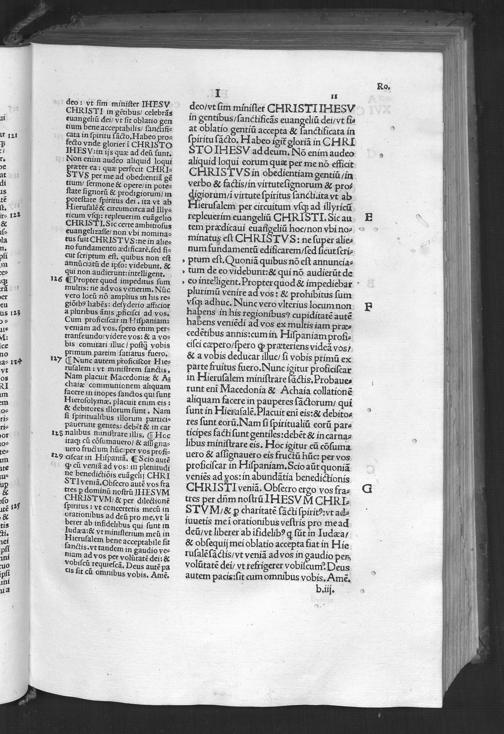 Ro.
I
II
deo: vt sim minister IHESV
CHRISTI in gētibus/ celebrās
euangeliū dei/ vt fit oblatio gen
tium bene acceptabilis/ sanctifi-
cata in spiritu sācto. Habeo pro-
fecto vnde glorier ī CHRISTO
IHESV: in ijs quæ ad deū sunt.
Non enim audeo aliquid loqui
præter ea: quæ perfecit CHRI-
STVS per me ad obedientiā gē
tium/ sermone & opere/ in pote-
state signorū & prodigiorū/ in
potestate spiritus dei. ita vt ab
Hierusalē & circummerca ad Illyri
ricum vsq; repleuerim euāgeliū
CHRISTI. Sic certe ambitiosus
euangelizasse: non vbi nomina-
tus fuit CHRISTVS: ne in alie-
no fundamento ædificarē. sed si-
cut scriptum est. quibus non est
annūciatū de ipso: videbunt. &
qui non audierunt: intelligent.
126 ¶ Propter quod impeditus sum
multum: ne ad vos venerim. Nūc
vero locū nō amplius in his re-
giōib9 habēs: desyderio afficior
a pluribus ānis .pficisci ad vos.
Cum proficiscar in Hispaniam:
veniam ad vos. spero enim per-
transeundo/ videre vos: & a vo-
bis comitari illuc/ postq̄ vobis
primum partim satiatus fuero.
127 ¶ Nunc autem proficiscor Hie-
rusalem: vt ministrem sanctis.
Nam placuit Macedoniæ & A-
chaiæ communionem aliquam
facere in inopes sanctos qui sunt
Hierosolymæ. placuit enim eis:
& debitores illorum sunt. Nam
si spiritualibus illorum partici-
pauerunt gentes: debēt & in car
128 nalibus ministrare illis. ¶ Hoc
itaq; cū cōsumauero/ & assigna-
uero fructum hūc: per vos profi-
129 ciscar in Hispaniā. ¶ Scio autē
q̄ cū veniā ad vos: in plenitudi
ne benedictiōis euāgelij CHRI
STI veniā. Obsecro autē vos fra
tres p dominū nostrū IHESVM
CHRISTVM/ & per dilectionē
spiritus: vt concertetis mecū in
orationibus ad deū pro me. vt li
berer ab infidelibus qui sunt in
Iudæa: & vt ministerium meū in
Hierusalem bene acceptabile fit
sanctis. vt tandem in gaudio ve-
niam ad vos per volūtatē dei: &
vobiscū requiescā. Deus autē pa
cis fit cū omnibus vobis. Amē.
deo/ vt sim minister CHRISTI IHESV
in gentibus/ sanctificās euangeliū dei/ vt fi-
at oblatio gentiū accepta & sanctificata in
spiritu sācto. Habeo igiť gloriā in CHRI
STO IHESV ad deum. Nō enim audeo
aliquid loqui eorum quæ per me nō efficit
CHRISTVS in obedientiam gentiū/ in
verbo & factis/ in virtute signorum & pro-
digiorum/ in virtute spiritus sancti. ita vt ab
Hierusalem per circuitum vsq; ad illyricū
repleuerim euangeliū CHRISTI. Sic au
E
tem prædicaui euangeliū hoc/ non vbi no-
minatus est CHRISTVS: ne super alie-
num fundamentū edificarem/ sed sicut scri-
ptum est. Quoniā quibus nō est annuncia-
tum de eo videbunt: & qui nō audierūt de
eo intelligent. Propter quod & impediebar
plurimū venire ad vos: & prohibitus sum
vsq; adhuc. Nunc vero vlterius locum non
F
habens in his regionibus/ cupiditatē autē
habens veniēdi ad vos ex multis iam præ-
cedētibus annis: cum in Hispaniam profi-
cisci cœpero/ spero q̄ præteriens videā vos/
& a vobis deducar illuc/ si vobis primū ex
parte fruitus fuero. Nunc igitur proficiscar
in Hierusalem ministrare sāctis. Probaue-
runt eni Macedonia & Achaia collationē
aliquam facere in pauperes sāctorum/ qui
sunt in Hierusalē. Placuit eni eis: & debito-
res sunt eorū. Nam si spiritualiū eorū par-
ticipes facti sunt gentiles: debēt & in carna-
libus ministrare eis. Hoc igitur cū cōsuma
uero & assignauero eis fructū hūc: per vos
proficiscar in Hispaniam. Scio aūt quoniā
veniēs ad vos: in abundātia benedictionis
CHRISTI veniā. Obsecro ergo vos fra-
G
tres per dñm nostrū IHESVM CHRI-
STVM/ & p charitatē sācti spirit9: vt ad-
iuuetis me i orationibus vestris pro me ad
deū/ vt liberer ab infidelib9 q sūt in Iudæa/
& obsequij mei oblatio accepta fiat in Hie
rusalē sāctis/ vt veniā ad vos in gaudio per
volūtatē dei/ vt refrigerer vobiscum. Deus
autem pacis: fit cum omnibus vobis. Amē.
b.iij.